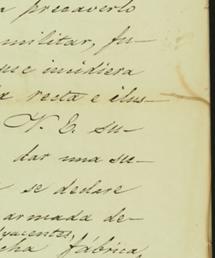 a precaverlo
militar, fu-
que incidiera
recta e ilus-
V. E. su-
dar una su-
se declare
armada de-
dyacentes,
cha fábrica,